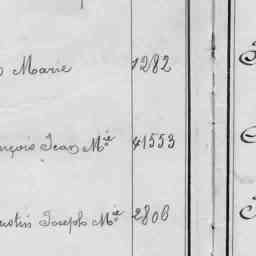 Marie 1282
nçois Jean Mie 41553
ustin Joseph Mie 2806